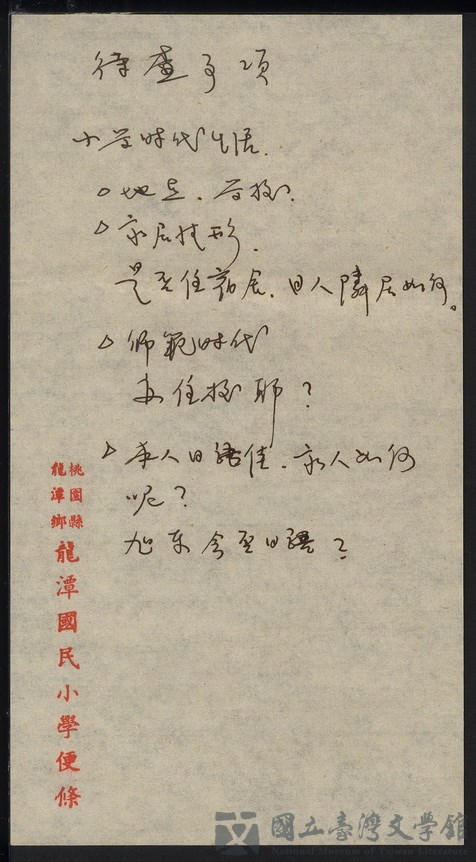 待查事項
小学时代生活.
△地点、学校.
△家居情形.
是否住宿舍、日人隣居如何。
△师範时代
亦住校耶？
△本人日語佳、家人如何
呢？
旭東会否日語？
桃園縣
龍潭鄉
龍潭國民小學便條
國立臺灣文學館
National Museum of Taiwan Literature